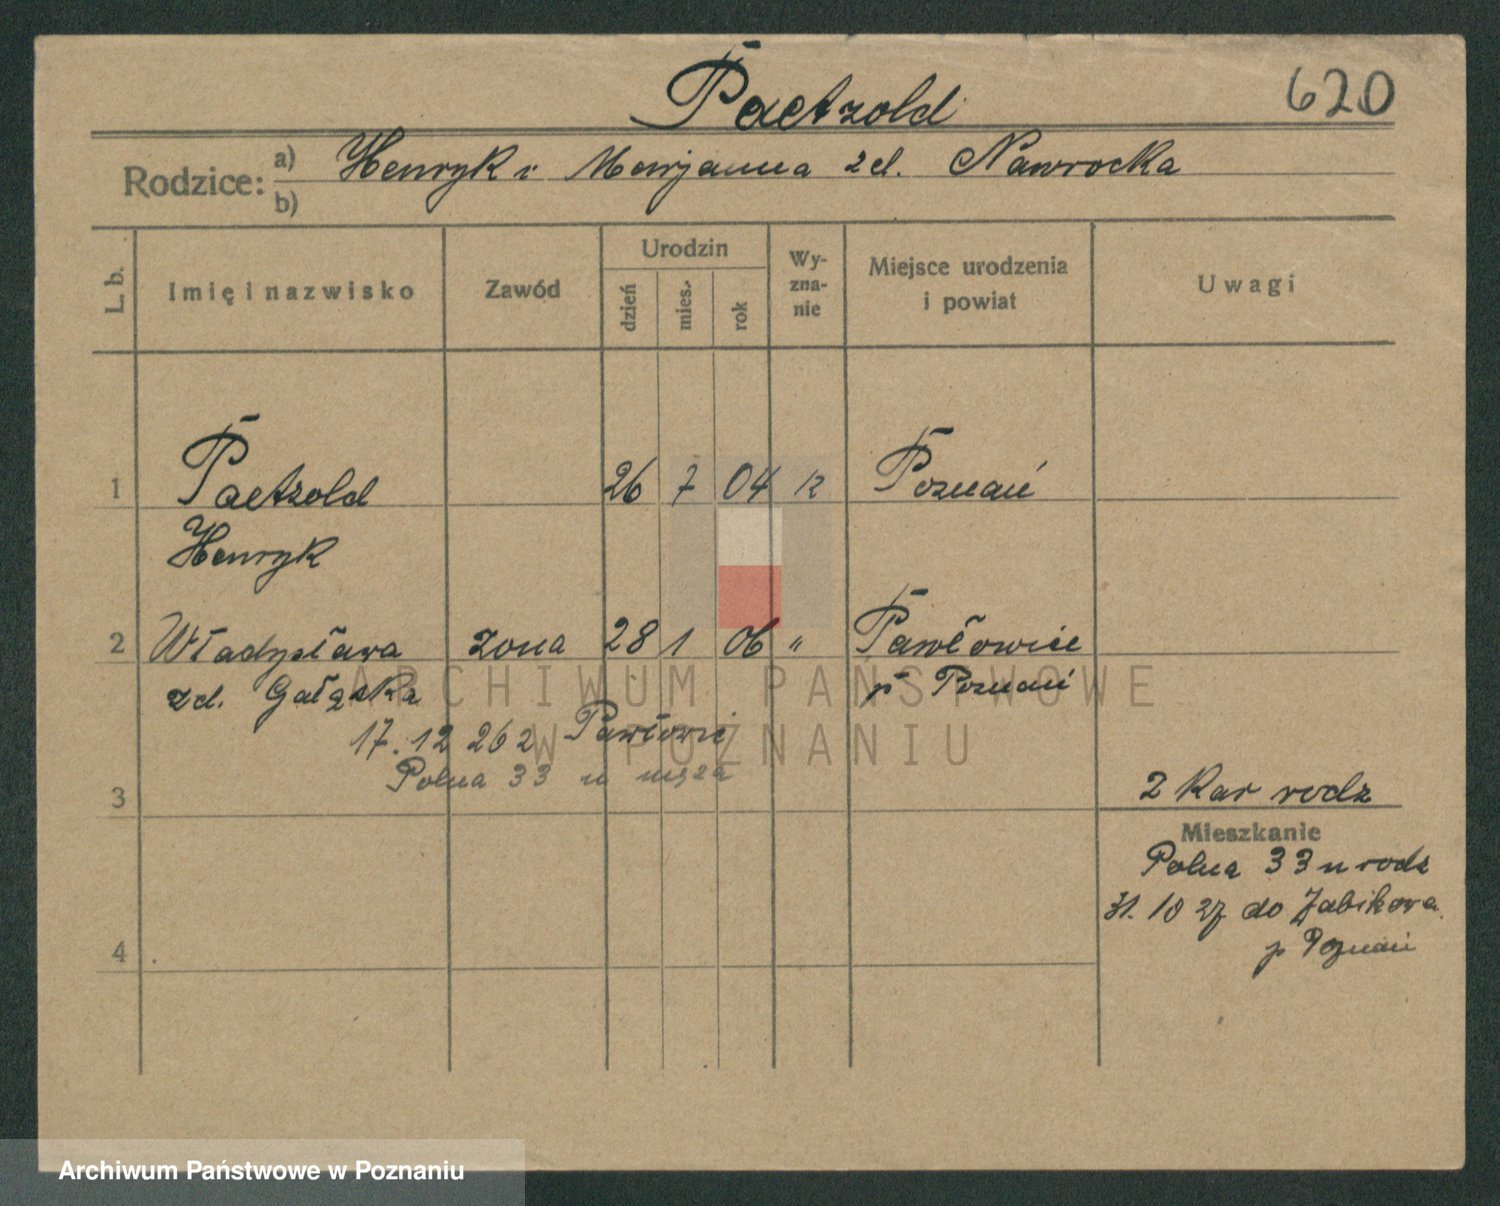 Paetzold
620
Rodzice:
a) Henryk i Marjanna zd. Nawrocka
b)
L. b.
Imię i nazwisko
Zawód
Urodzin
dzień
mies.
rok
Wy-
zna-
nie
Miejsce urodzenia
i powiat
Uwagi
1 Paetzold 26 7 04 R Poznań
Henryk
2 Władysława żona 28 1 06 " Pawłowice
zd. Gałązka p Poznań
17.12 26 z Pawłowic
Polna 33 u męża
3
2 Kar rodz
Mieszkanie
Polna 33 u rodz
31. 10 27 do Żabikowa
p Poznań
4
ARCHIWUM PAŃSTWOWE
W POZNANIU
Archiwum Państwowe w Poznaniu